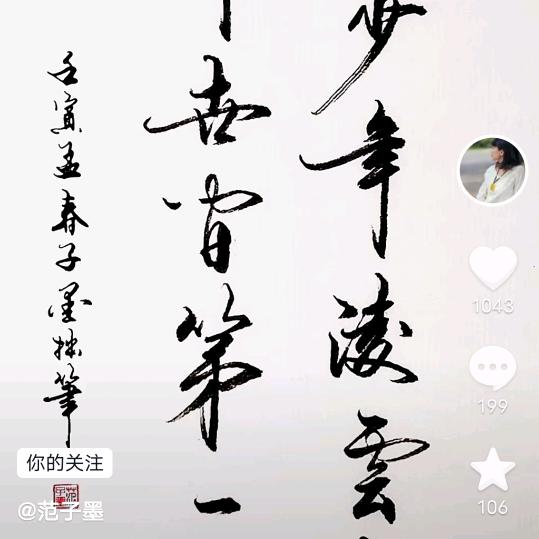 少年凌雲
世間第一
壬寅孟春子墨拙筆
你的关注
@范子墨
1043
199
106